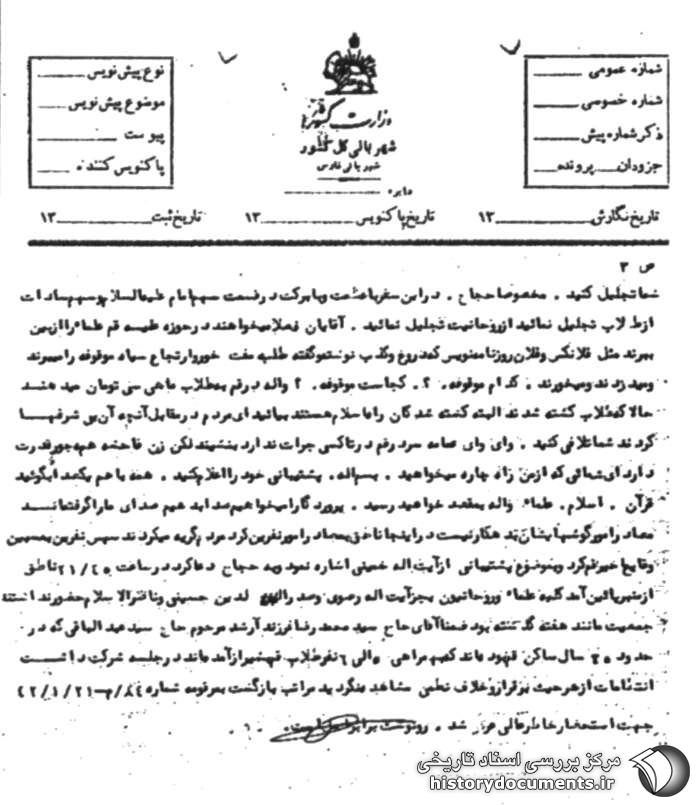 شماره عمومی
شماره خصوصی
ذکر شماره پیش
جزودان پرونده
وزارت کشور
شهربانی کل کشور
شهربانی فارس
دایره
نوع پیش نویس
موضوع پیش نویس
پیوست
پاکنویس کننده
تاریخ نگارش ۱۳
تاریخ پاکنویس ۱۳
تاریخ ثبت ۱۳
ص ۳
شما تجلیل کنید . مخصوصا حجاج . در این سفر با عظمت و با برکت در قسمت سهم امام علیه السلام و سهم سادات
از طلاب تجلیل نمائید از روحانیت تجلیل نمائید . آقایان فعلا میخواهند در حوزه علمیه قم علماء را از بین
ببرند مثل فلانکس و فلان روزنامه نویس که دروغ و کذب نوشته و گفته طلبه مفت خور و ارتجاع سیاه موقوفه را میبرند
و میدزدند و میخورند . کدام موقوفه . ؟ . کجاست موقوفه . ؟ واله در قم به طلاب ماهی سی تومان میدهند
حالا که طلاب کشته شدند البته کشته شدگان راه اسلام هستند بیائید ای مردم در مقابل آنچه آن بی شرفها
کردند شما تلافی کنید . وای وای عمامه سر در قم در تاکسی جرات ندارد بنشیند لکن زن فاحشه همه جور قدرت
دارد ای شمائی که از من راه چاره میخواهید . بسم اله . پشتیبانی خود را اعلام کنید . همه با هم یکصدا بگوئید
قرآن . اسلام . علماء واله بمقصد خواهید رسید . پروردگارا میخواهیم صدا بدهیم صدای ما را گرفته‌اند
در اینجا ناطق مردم گریه میکردند سپس
و بموضوع پشتیبانی از آیت اله خمینی اشاره نمود و به حجاج دعا کرد در ساعت ۲۱/۴۵ ناطق
از منبر پائین آمد کلیه علماء و روحانیون بجز آیت اله رضوی و صدرالدین حسینی و نافتر الاسلام حضور داشتند
جمعیت مانند هفته گذشته بود ضمنا آقای حاج سید محمد رضا فرزند ارشد مرحوم حاج سید عبدالباقی که در
حدود ۲۵ سال ساکن قم بوده‌اند که به همراهی ۵ الی ۶ نفر طلاب قم بشیراز آمده‌اند در جلسه شرکت داشت
انتظامات از هر حیث برقرار و خلاف نظمی مشاهده نگردید مراتب بازگشت بمرقومه شماره
جهت استحضار خاطر عالی عرض شد . رونوشت برابر اصل است .
مرکز بررسی اسناد تاریخی
historydocuments.ir